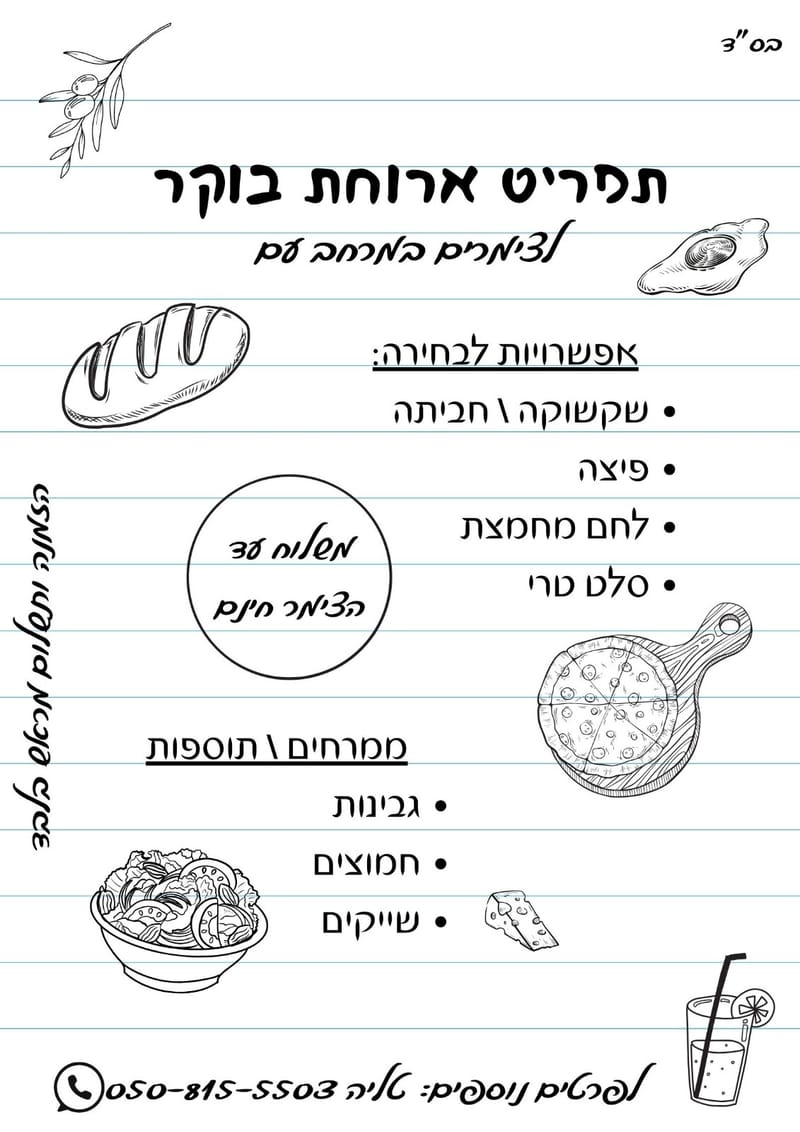 בס"ד
תפריט ארוחת בוקר
לצימרים במרחב עם
אפשרויות לבחירה:
• שקשוקה \ חביתה
• פיצה
• לחם מחמצת
• סלט טרי
משלוח עד
הצימר חינם
הזמנה ותשלום מראש בלבד
ממרחים \ תוספות
• גבינות
• חמוצים
• שייקים
לפרטים נוספים: טליה 050-815-5503